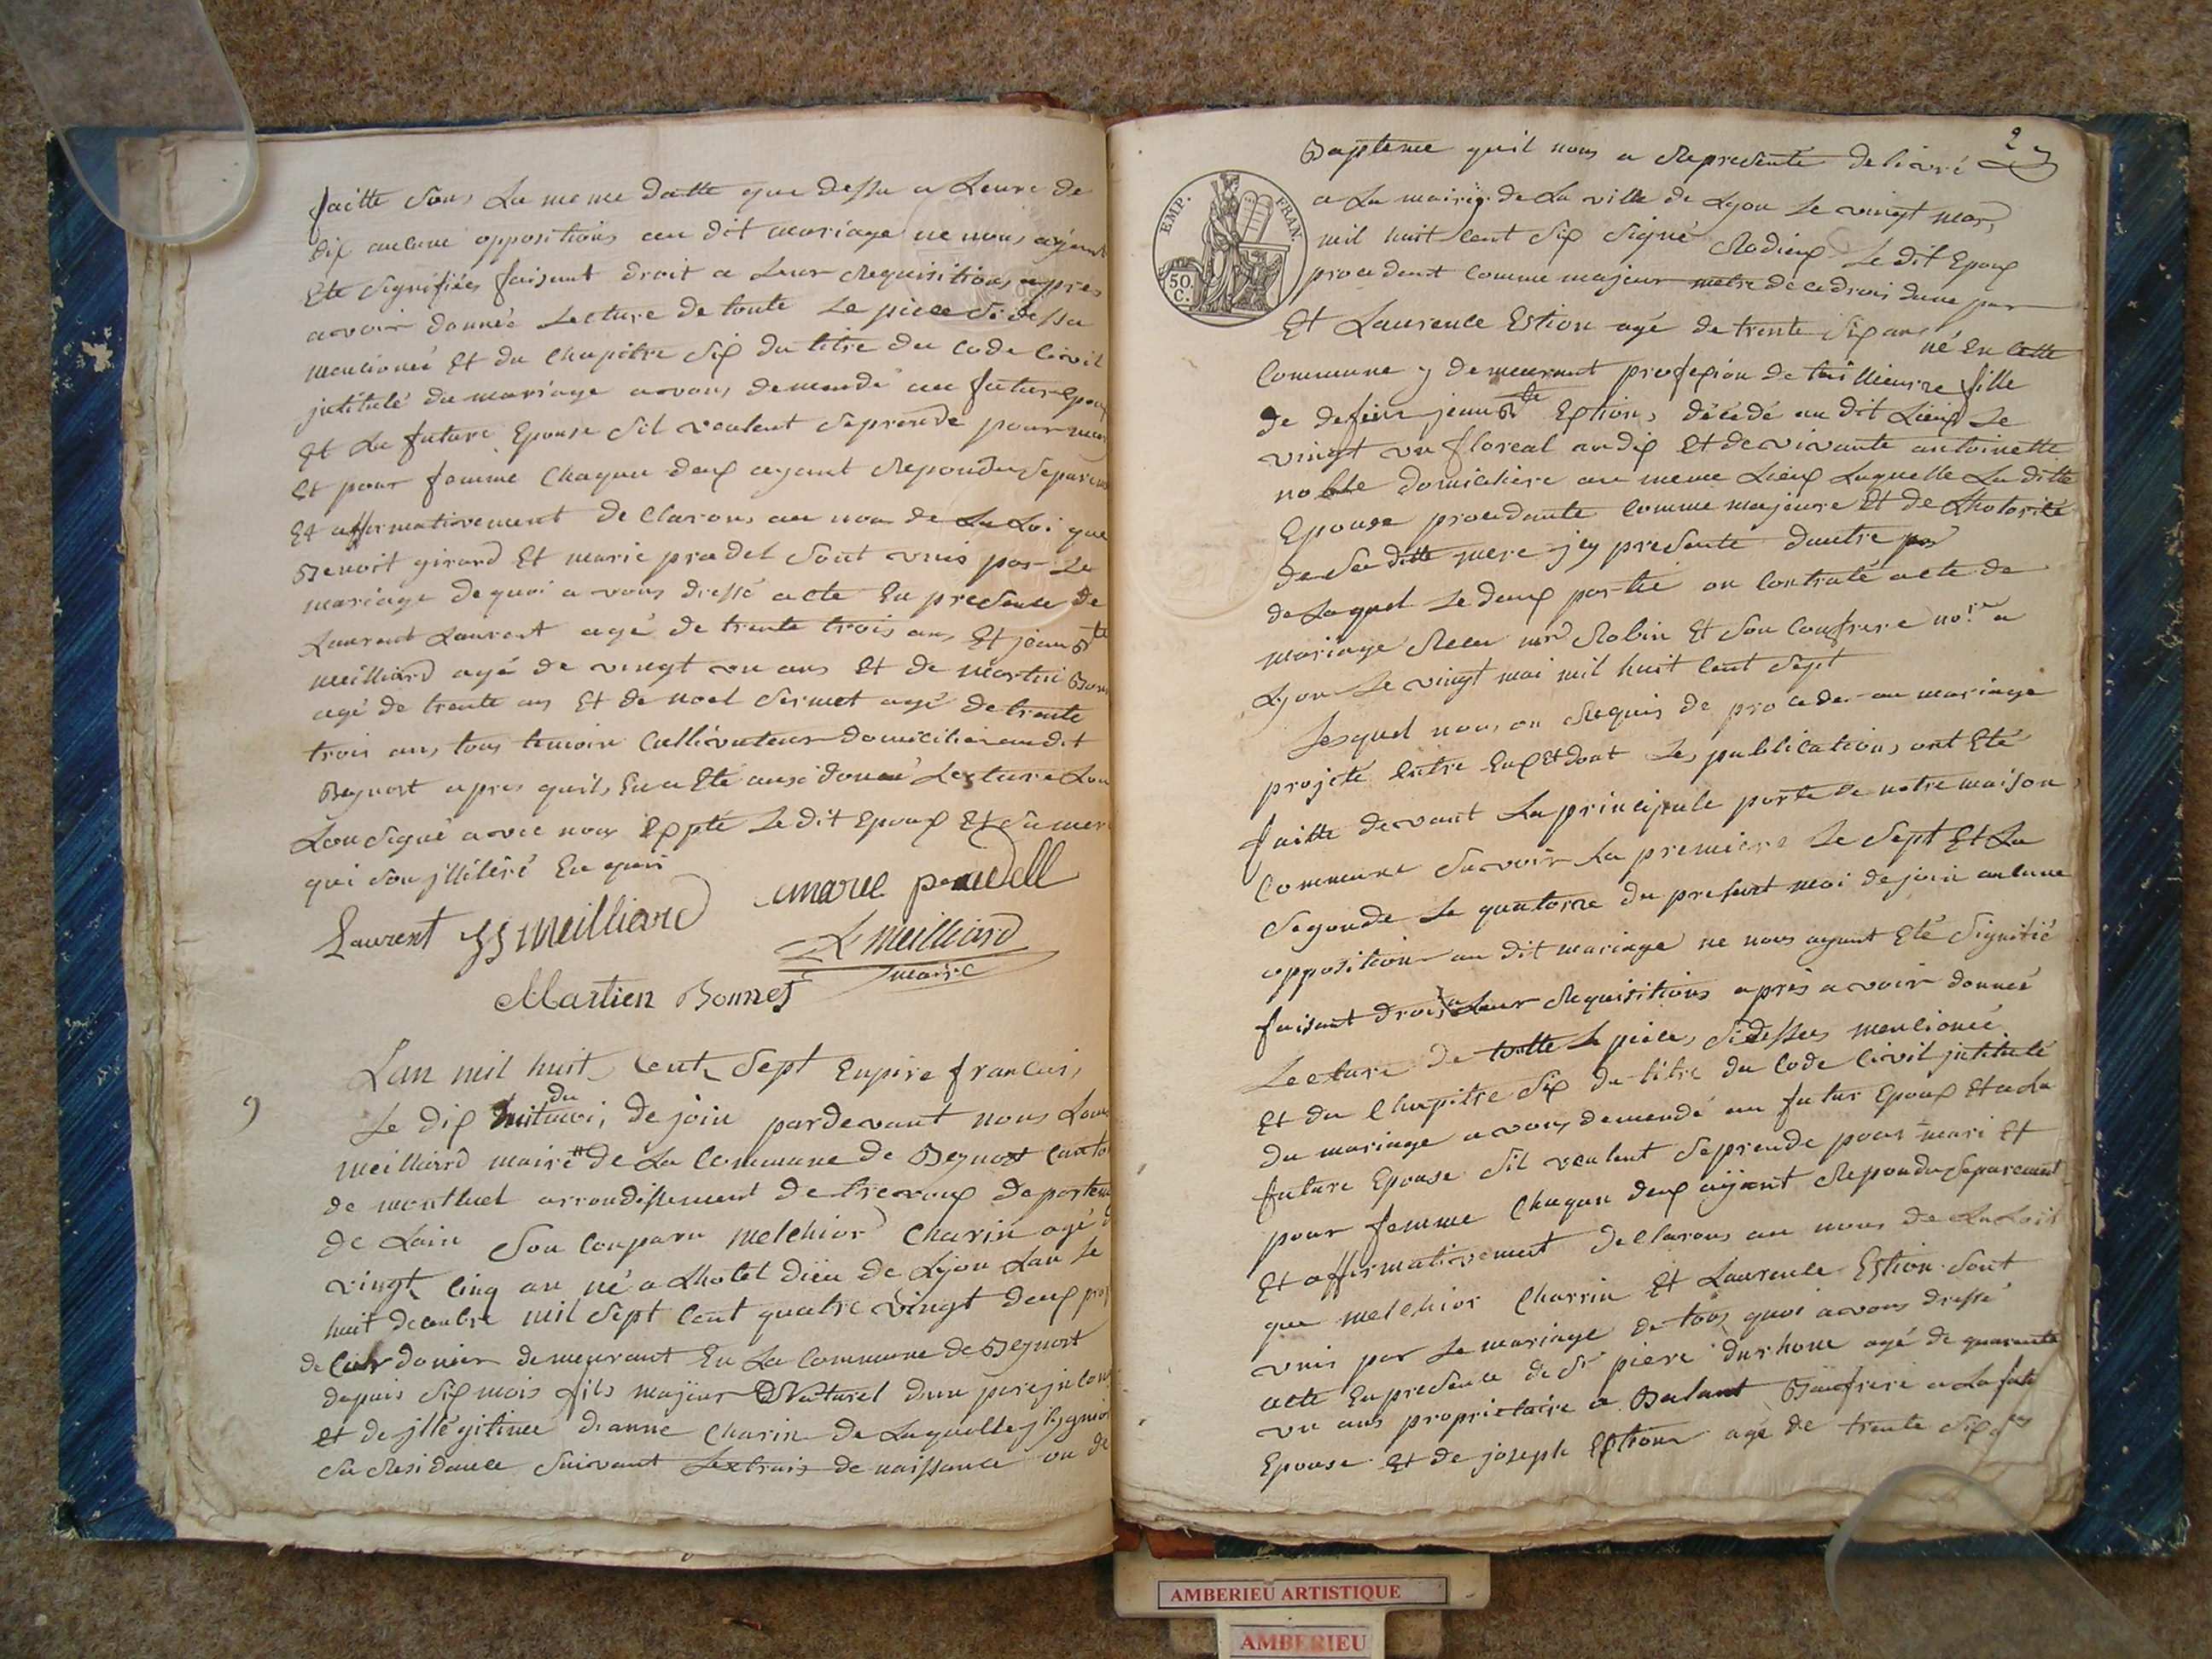 faitte sous La meme datte que dessu a Leure de
dix aucune oppositions au dit mariage ne nous ayant
Eté signifiées faisant droit a Leur Requisitions apres
avoir donnée Lecture de toute Le piece Si dessu
mentionée Et du Chapitre Six du titre du Code Civil
jntitulé du mariage avons demandé au futur Epoux
Et La future Epouse Sil veulent Seprendre pour mari
Et pour femme Chaqun deux ayant Repondu Separem
Et affirmativement de Clarons au nom de La Loi que
Benoit girard Et marie pradel Sont vnis par Le
mariage dequoi avons dressé acte En presence de
Laurent Laurent agé de trente trois ans Et jean Bte
meilliard agé de vingt vn ans Et de Martin Bonn
agé de trente ans Et de noel Sermet agé de trente
trois ans tous temoin Cultivateur domicilié audit
Beynost apres quils En a Eté ausi donné Lecture Lon
Lon Signé avec nous Expté Le dit Epoux Et Sa mere
qui Son jlliteré En quoi
Laurent JB Meilliard marie pradell
L Meilliard
maire
Martien Bonnet
9
Lan mil huit Cent Sept Enpire francais,
Le dix huit du moi, de join pardevant nous Lau
meilliard maire de La Commune de Beynost Canto
de montluel arrondissement de trevoux departem
de Lain Son Conparu Melchior Charin agé d
vingt Cinq an né a Lhotel dieu de Lyon Lan Le
huit decenbre mil Sept Cent quatre vingt deux prof
de Cordonier demeurant En La Commune de Beynost
depuis Six mois fils majeur Naturel dun pere jnCon
Et de jllégitimee dianne Charin de Laquelle jl jgnior
Sa Residance Suivant Lextrais de naissance ou de
27
Bapteme quil nous a Representé delivré
a La mairie de La ville de Lyon Le vingt mar,
mil huit Cent Six Signé Rodieux Le dit Epoux
procedent Comme majeur metre de ce drois dune par
Et Laurence Estion agé de trente Six ans né En Cette
Commune y demeurant profexion de taillieusze fille
de defun jean Bte Extion, décédé au dit Lieux Le
vingt vn floreal an dix Et de vivante antoinette
noble domicilière au meme Lieux Laquelle La ditte
Epouse procedante Comme majeure Et de Lhotorité
de Sa ditte mere jcy presente dautre par
de Laquel Le deux partie on Contraté acte de
mariage Recu mre Robin Et Son Confrere nore a
Lyon Le vingt mai mil huit Cent Sept
Lesquel nous on Requis de proceder au mariage
projeté Entre Eux Et dont Les publications ont Eté
faitte devant La principale porte de notre maison
Commune Savoir La premiere Le Sept Et La
Segonde Le quatorze du present moi de join aucune
opposition au dit mariage ne nous ayant Eté Signifié
faisant drois a Leur Requisitions après avoir donnée
Lecture de toutte Le pieces Sidessus mentionée
Et du Chapitre Six du titre du Code Civil jntitulé
du mariage avons demandé au futur Epoux Et a La
future Epouse Sil veulent Seprende pour mari Et
pour femme Chaqun deux ayant Repondu Separement
Et affirmativement declarons au nom de La Loix
que melchior Charrin Et Laurence Estion Sont
vnis par Le mariage de tous quoi avons dressé
acte En presence de Sr piere durhone agé de quarente
vn ans proprietaire a Balant Baufrere a La futu
Epouse Et de joseph Extion agé de trente Six ans
EMP. FRAN.
50 C.
AMBERIEU ARTISTIQUE
AMBERIEU